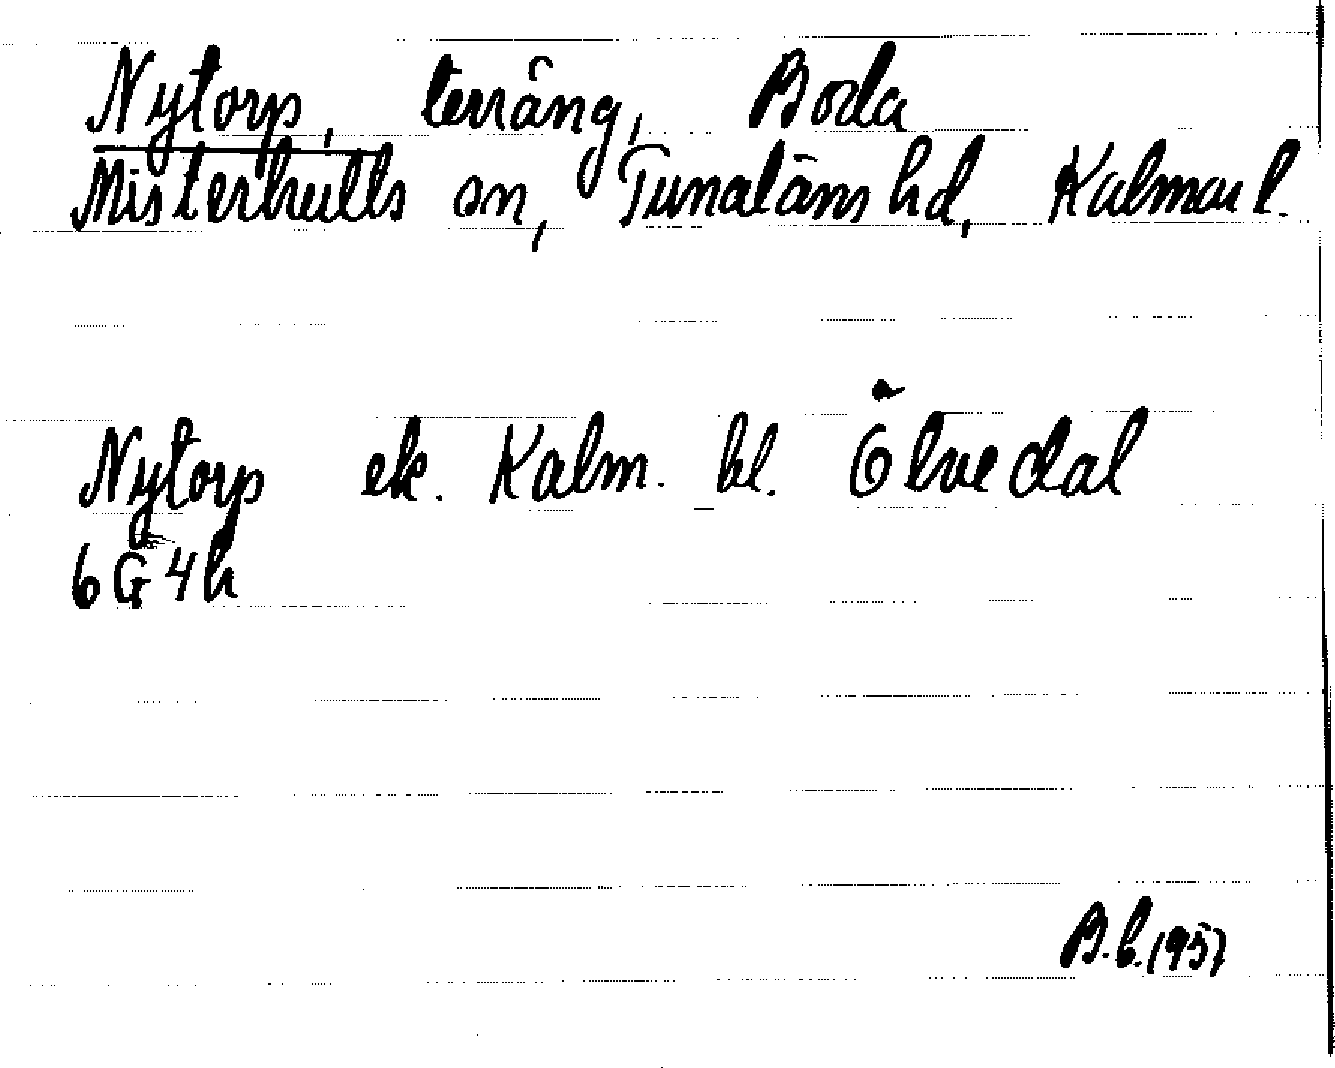 Nytorp, terräng, Boda
Misterhults sn, Tunaläns hd, Kalmar l.
Nytorp ek. Kalm. bl. Ölvedal
6G4h
B.b. 1957